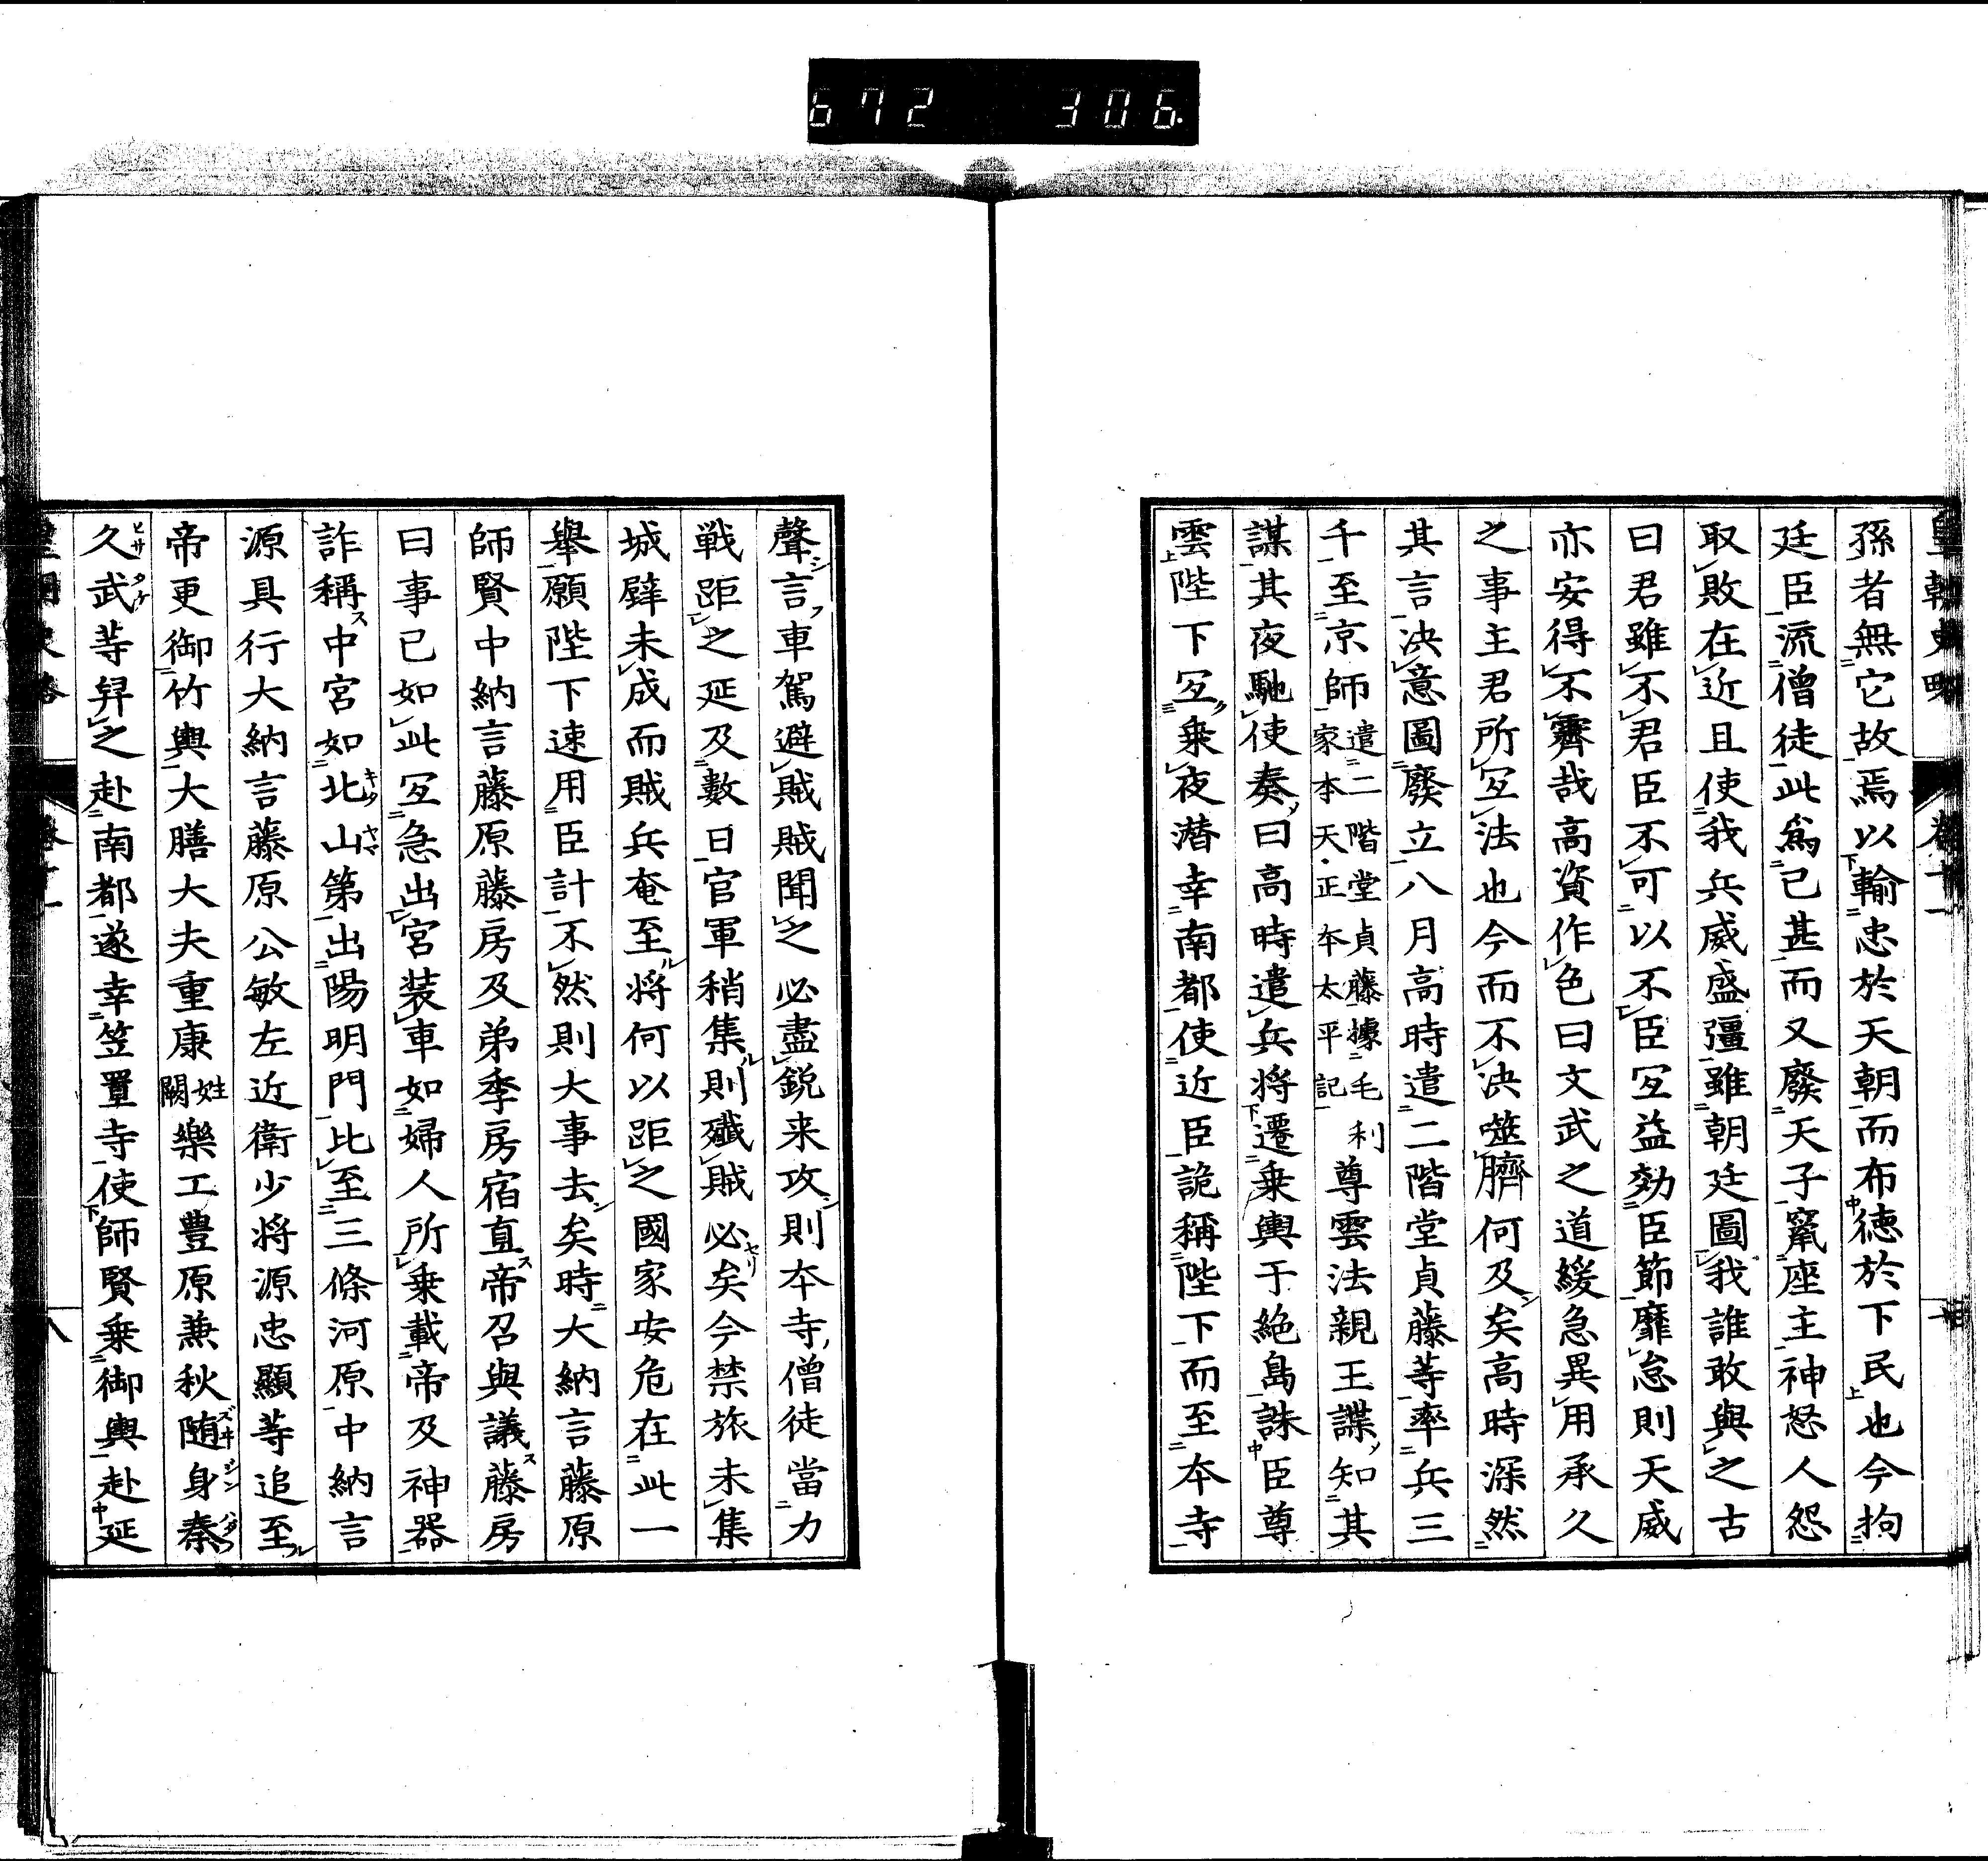 672 306.
孫者無它故焉以輸忠於天朝而布徳於下民也今拘
廷臣流僧徒此爲已甚而又廢天子竄座主神怒人怨
取敗在近且使我兵威盛彊雖朝廷圖我誰敢與之古
曰君雖不君臣不可以不臣冝益効臣節靡怠則天威
亦安得不霽哉高資作色曰文武之道緩急異用承久
之事主君所冝法也今而不决噬臍何及矣高時深然
其言决意圖廢立八月高時遣二階堂貞藤等率兵三
千至京師遣二階堂貞藤據毛利家本天正本太平記尊雲法親王諜知其
謀其夜馳使奏曰高時遣兵将遷乗輿于絶島誅臣尊
雲陛下冝乗夜潜幸南都使近臣詭稱陛下而至本寺
聲言車駕避賊賊聞之必盡鋭来攻則本寺僧徒當力
戦距之延及數日官軍稍集則殲賊必矣今禁旅未集
城壁未成而賊兵奄至将何以距之國家安危在此一
舉願陛下速用臣計不然則大事去矣時大納言藤原
師賢中納言藤原藤房及弟季房宿直帝召與議藤房
曰事已如此冝急出宮装車如婦人所乗載帝及神器
詐稱中宮如北山第出陽明門比至三條河原中納言
源具行大納言藤原公敏左近衛少将源忠顯等追至
帝更御竹輿大膳大夫重康姓闕樂工豊原兼秋随身秦
久武等舁之赴南都遂幸笠置寺使師賢乗御輿赴延